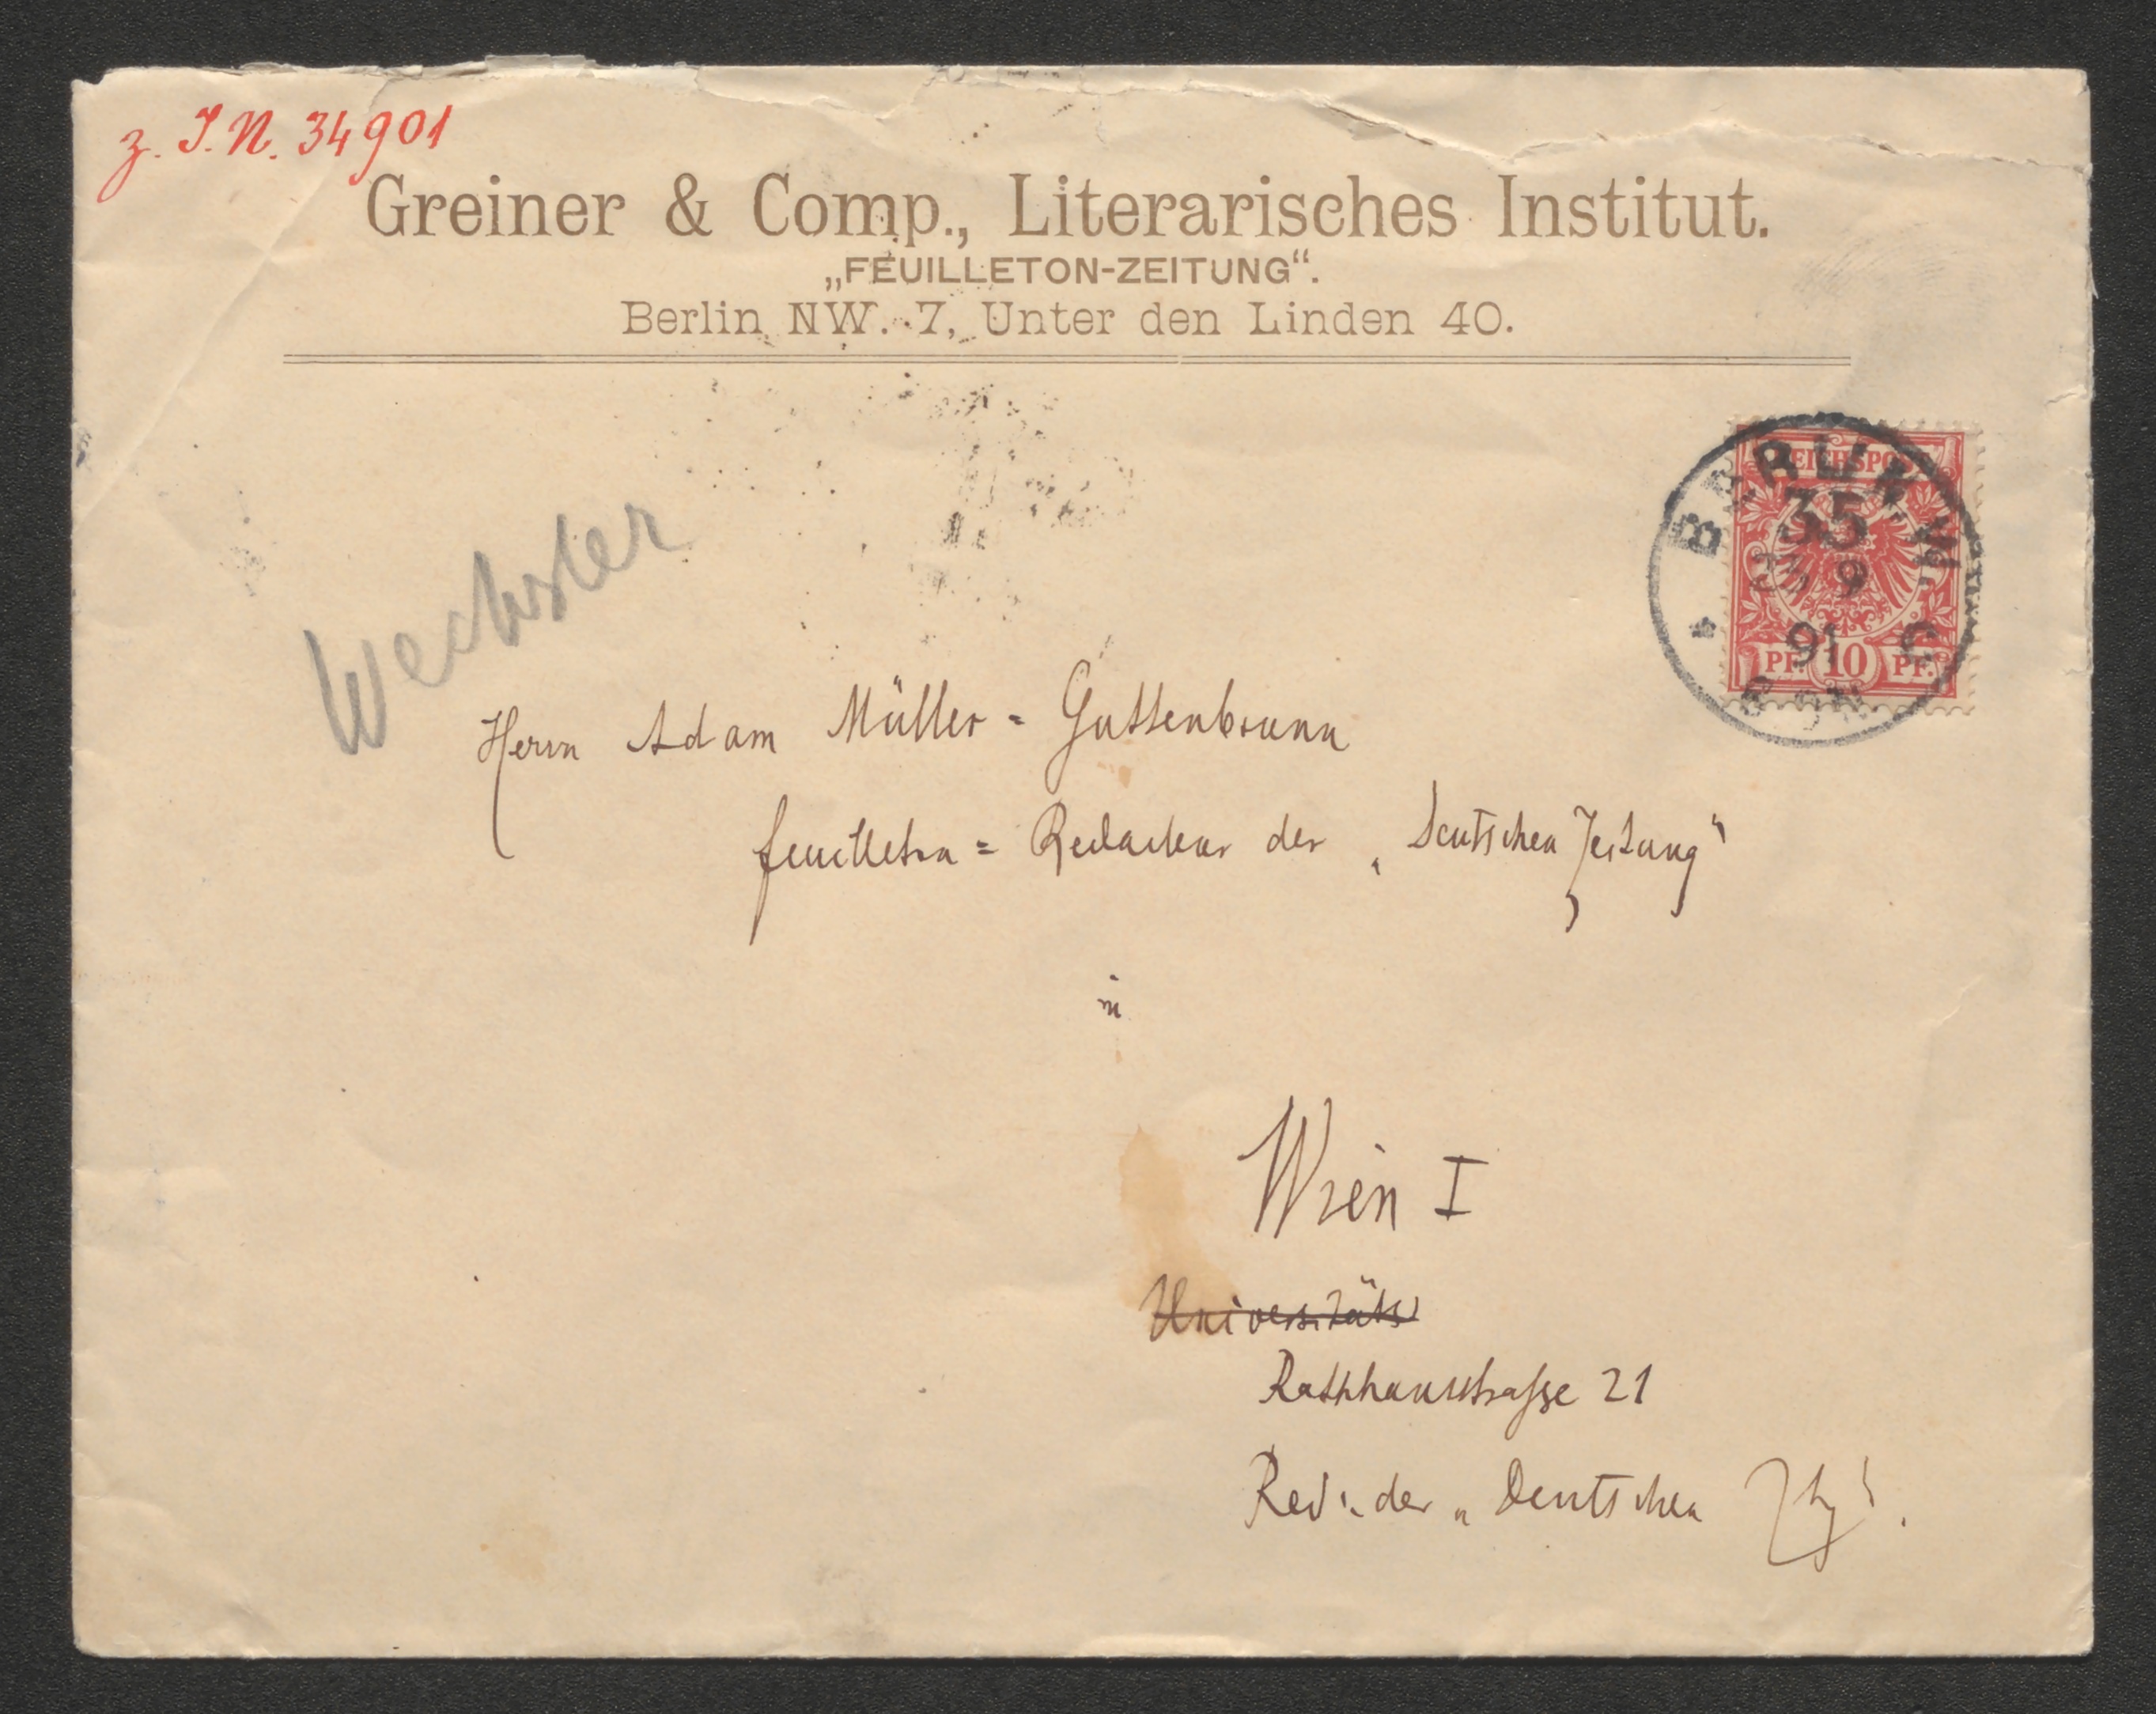 z. I. N. 34901
Greiner & Comp., Literarisches Institut.
„FEUILLETON-ZEITUNG“.
Berlin NW. 7, Unter den Linden 40.
BERLIN W.
35
9
91
REICHSPOST
PF. 10 PF.
Wechsler
Herrn Adam Müller=Guttenbrunn
Feuilleton=Redacteur der „Deutschen Zeitung“
in
Wien I
Universitäts
Rathhausstraße 21
Red. der „Deutschen Ztg“.